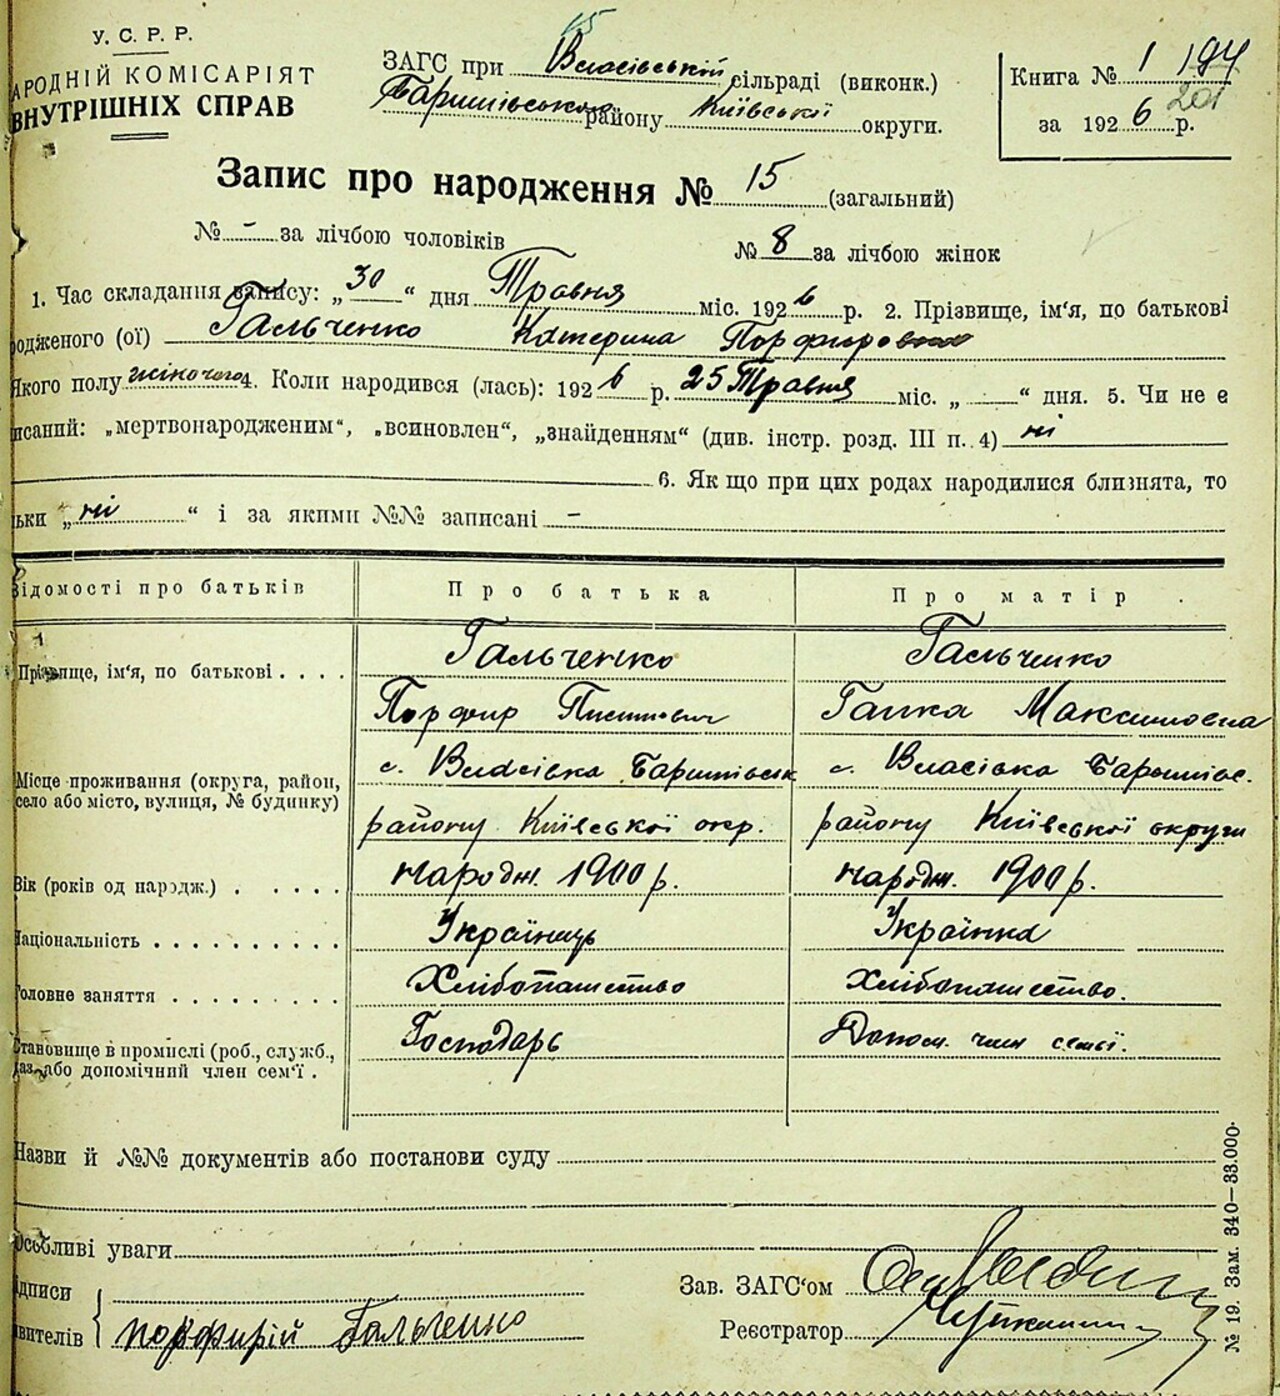 У. С. Р. Р.
АРОДНІЙ КОМІСАРІЯТ
ВНУТРІШНІХ СПРАВ
ЗАГС при Власівській сільраді (виконк.)
Баришівського району Київської округи.
Книга № 1 194
201
за 1926 р.
Запис про народження № 15 (загальний)
№ - за лічбою чоловіків
№ 8 за лічбою жінок
1. Час складання запису: „30“ дня Травня міс. 1926 р. 2. Прізвище, ім'я, по батькові
родженого (ої) Гальченко Катерина Порфировна
Якого полу жіночого 4. Коли народився (лась): 1926 р. 25 Травня міс. „ “ дня. 5. Чи не є
писаний: „мертвонародженим“, „всиновлен“, „знайденням“ (див. інстр. розд. III п. 4) ні
6. Як що при цих родах народилися близнята, то
ьки „ні“ і за якими №№ записані -
Відомості про батьків
Про батька
Про матір
Прізвище, ім'я, по батькові . . . .
Гальченко
Гальченко
Порфир
Ганка Максимовна
Місце проживання (округа, район,
село або місто, вулиця, № будинку)
с. Власівка Баришівськ
с. Власівка Баришівс.
району Київської окр.
району Київської округи
Вік (років од народж.) . . . . .
народж. 1900 р.
народж. 1900 р.
Національність . . . . . . . . . .
Українець
Українка
Головне заняття . . . . . . . . .
Хлібопашество
Хлібопашество.
Становище в промислі (роб., служб.,
газ. або допомічний член сем'ї .
Господарь
Допом. член семьї.
Назви й №№ документів або постанови суду
Особливі уваги
ідписи
явителів
порфирій Гальченко
Зав. ЗАГС'ом
Реєстратор
№ 19. Зам. 340—33.000.